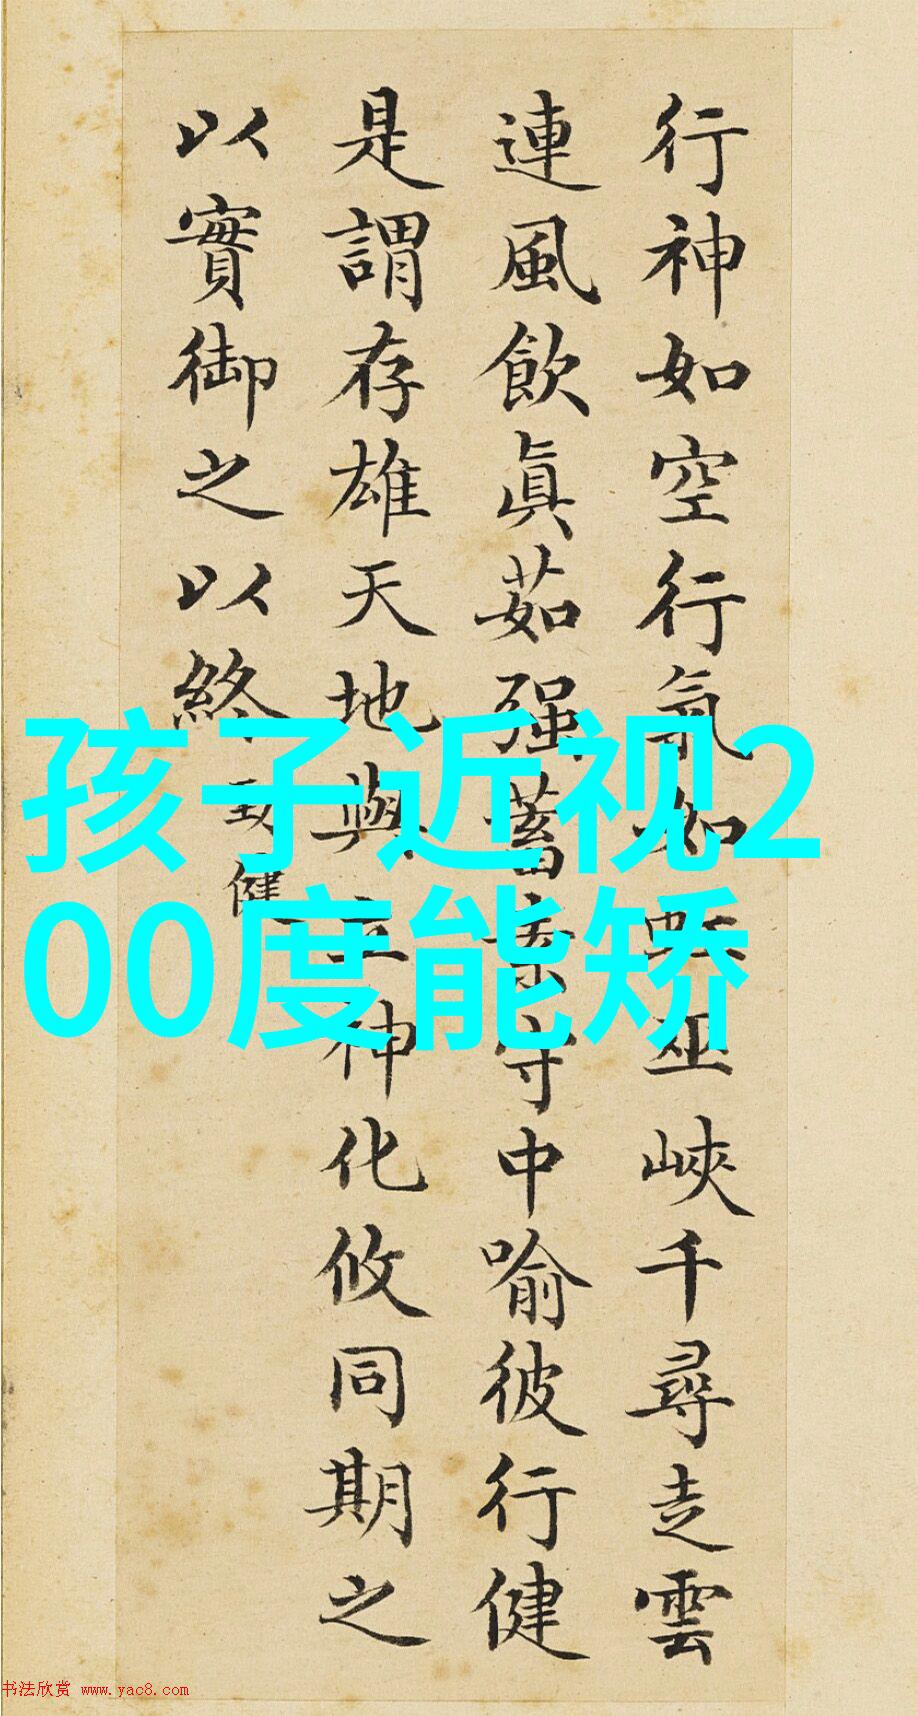 行神如空行氣如虹巫峽千尋走雲
連風飲眞茹强蓄素守中喻彼行健
是謂存雄天地與立神化攸同期之
以實御之以終
勁健
孩子近视2
00度能矫
书法欣赏 www.yac8.com